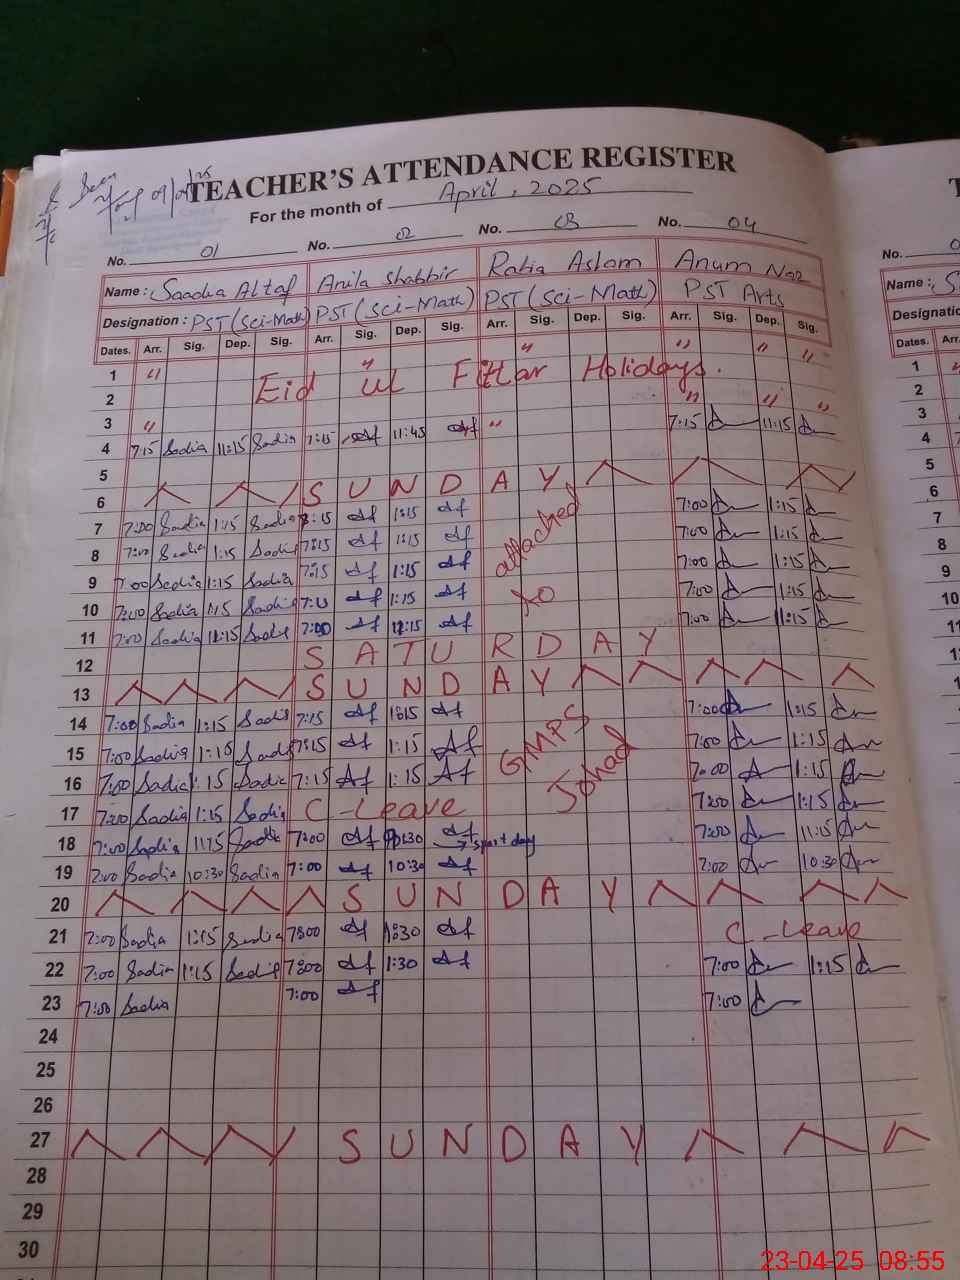 Seen 09/04/25
TEACHER'S ATTENDANCE REGISTER
For the month of April, 2025
No. 01 No. 02 No. 03 No. 04 No.
Name: Saadia Altaf Anila Shabbir Rabia Aslam Anum Naz Name:
Designation: PST (Sci-Math) PST (Sci-Math) PST (Sci-Math) PST Arts
Dates. Arr. Sig. Dep. Sig. Arr. Sig. Dep. Sig. Arr. Sig. Dep. Sig. Arr. Sig. Dep. Sig. Dates.
1 " " " " " " 1
2 Eid ul Fittar Holidays. 2
3 " " " " " 3
4 7:15 Sadia 11:15 Sadia 7:15 Af 11:45 Af 7:15 11:15 4
5 5
6 SUNDAY 6
7 7:00 Sadia 1:15 Sadia 8:15 Af 1:15 Af attached 7:00 1:15 7
8 7:00 Sadia 1:15 Sadia 7:15 Af 1:15 Af 7:00 1:15 8
9 7:00 Sadia 1:15 Sadia 7:15 Af 1:15 Af 7:00 1:15 9
10 7:00 Sadia 1:15 Sadia Af 1:15 Af to 7:00 1:15 10
11 7:00 Sadia 12:15 Sadia 7:00 Af 12:15 Af 7:00 11
12 SATURDAY
13 SUNDAY
14 7:00 Sadia 1:15 Sadia 7:15 Af 1:15 Af GMPS 7:00 1:15
15 7:00 Sadia 1:15 Sadia 7:15 Af 1:15 Af 7:00 1:15
16 7:00 Sadia 1:15 Sadia 7:15 Af 1:15 Af Johad 7:00 1:15
17 7:00 Sadia 1:15 Sadia C-Leave 7:00 1:15
18 7:00 Sadia 11:15 Sadia 7:00 Af Af 7:00 11:15
19 7:00 Sadia 10:30 Sadia 7:00 Af 10:30 Af 7:00 10:30
20 SUNDAY
21 7:00 Sadia 1:15 Sadia 7:00 Af 1:30 Af C-Leave
22 7:00 Sadia 1:15 Sadia 7:00 Af 1:30 Af 7:00 1:15
23 7:00 Sadia 7:00 Af 7:00
24
25
26
27 SUNDAY
28
29
30
23-04-25 08:55